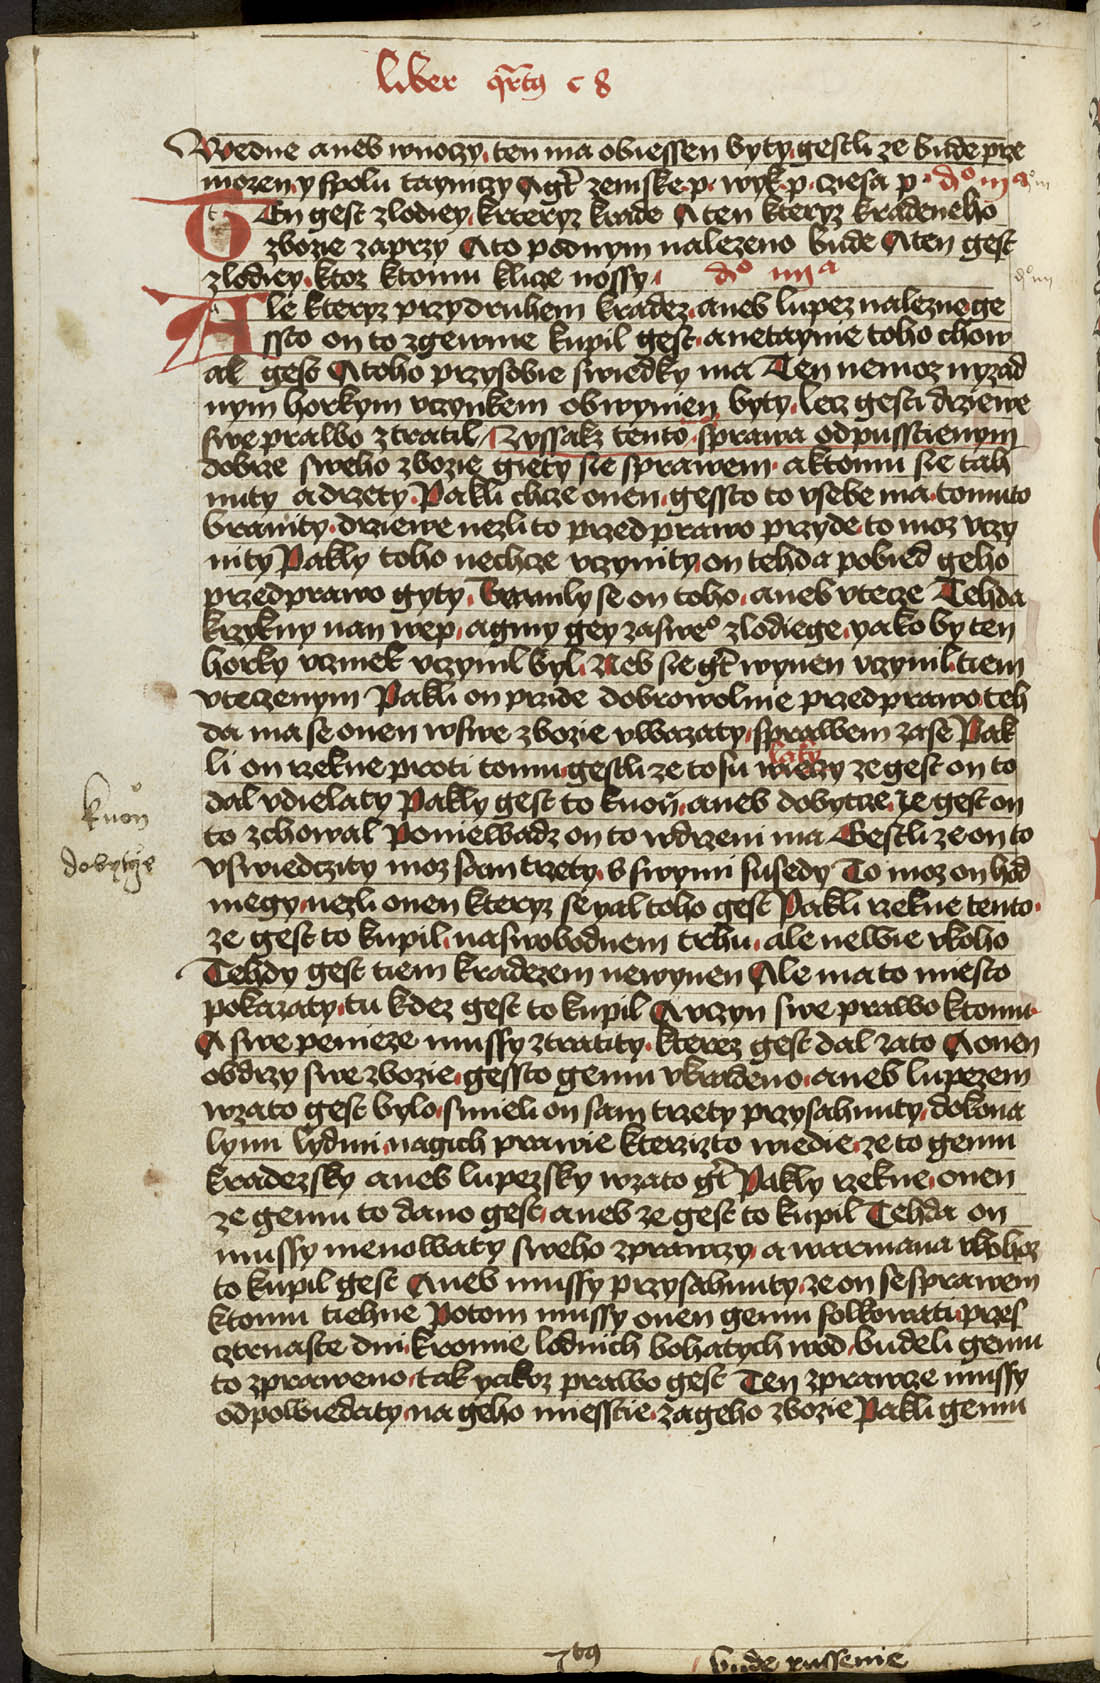 liber qrtg c 8
Wedne aneb wnoczy ten ma obiessen byty gestli ze bude prze
mozen y spolu tayniczy Agt zemske p wyk p cziesa p do iii a
TEn gest zlodiey krteryz krade A ten kteryz kradeneho
zbozie zaprzy A to podnym nalezeno bude A ten gest
zlodiey ktoz ktomu klicze nossy do iiii a
do iiii
Ale kteryz przydruhem kradez aneb lupez nalezne ge
ssto on to zgewnie kupil gest a netaynie toho chow
al gest A toho przysobie swiedky ma Ten nemoz nyzad
nym horkym vczynkem obwynien byty lecz gesti drziewe
swe prawo ztratil Czyssakz tento sprawa odpusscienym
dobrze sweho zbozie giety sie sprawem aktomu sie tah
nuty a drzety Pakli chcze onen gessto to vsebe ma tomuto
braniity drziewe nezli to przed prawo przyde to moz vczy
nity Pakly toho nechcze vczynity on tehda pobied geho
przed prawo gyty Branily se on toho aneb vtecze Tehda
krzykny nan wep a gmy gey zaswe° zlodiege yako by ten
horky vczinek vczynil byl Neb sie gt wynen vczynil tiem
vteczenym Pakli on przide dobrowolnie przed prawo teh
da ma se onen wswe zbozie vwazaty sprawem zase Pak
li on rzekne proti tomu gestli ze to su laky wieczy ze gest on to
dal vdielaty Pakly gest to kuon aneb dobytcze ze gest on
kuon
to zchowal Poniewadz on to wdrzeni ma Gestli ze on to
dobytcze
vswiedczity moz sam trzety s swymi susedy To moz on hod
niegy nezli onen kteryz se yal toho gest Pakli rzekne tento
ze gest to kupil naswobodnem trhu ale newie vkoho
Tehdy gest tiem kradezem newynen Ale ma to miesto
pokazaty tu kdez gest to kupil A vczyn swe prawo ktomu
A swe penieze mussy ztratity kterez gest dal zato A onen
obdrzy swe zbozie gessto gemu vkradeno aneb lupezem
wzato gest bylo smieli on sam trzety przysahnuty dokona
lymi lydmi nagich prawie kterizto wiedie ze to gemu
kradezsky aneb lupezsky wzato gt Pakly rzekne onen
ze gemu to dano gest aneb ze gest to kupil Tehda on
mussy menowaty sweho zprawczy a warmana vkohoz
to kupil gest Aneb mussy przysahnuty ze on se sprawem
ktomu tiehne Potom mussy onen gemu folkowati przes
cztrnaste dni kromie lodnich bohatych wod budeli gemu
to zpraweno tak yakoz prawo gest Ten zprawcze mussy
odpowiedaty na geho miesstie zageho zbozie Pakli gemu
7tg
bude russenie